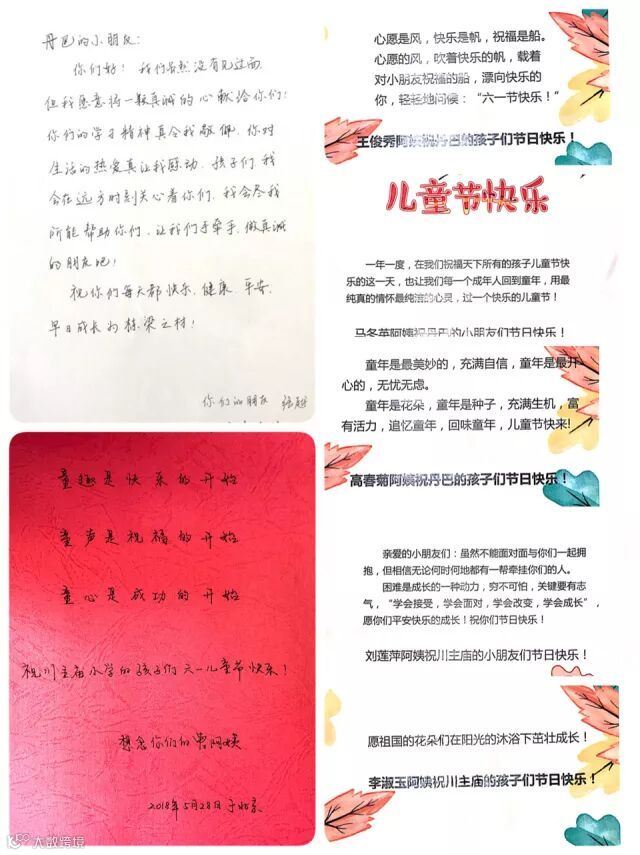 丹巴的小朋友:
你们好! 我们虽然没有见过面
但我愿意将一颗真诚的心献给你们!
你们的学习精神真令我敬佩, 你对
生活的热爱真让我感动. 孩子们 我
会在远方时刻关心着你们, 我会尽我
所能帮助你们, 让我们手牵手, 做真诚
的朋友吧!
祝你们每天都快乐、健康、平安、
早日成长为栋梁之材!
你们的朋友
童趣是快乐的开始
童声是祝福的开始
童心是成功的开始
祝川主庙小学的孩子们六一儿童节快乐!
想念你们的曹阿姨
2018年5月28日于北京
心愿是风,快乐是帆,祝福是船。
心愿的风,吹着快乐的帆,载着
对小朋友祝福的船,漂向快乐的
你,轻轻地问候:“六一节快乐!”
王俊秀阿姨祝丹巴的孩子们节日快乐!
儿童节快乐
一年一度,在我们祝福天下所有的孩子儿童节快
乐的这一天,也让我们每一个成年人回到童年,用最
纯真的情怀最纯洁的心灵,过一个快乐的儿童节!
马冬英阿姨祝丹巴的小朋友们节日快乐!
童年是最美妙的,充满自信,童年是最开
心的,无忧无虑。
童年是花朵,童年是种子,充满生机,富
有活力,追忆童年,回味童年,儿童节快来!
高春菊阿姨祝丹巴的孩子们节日快乐!
亲爱的小朋友们:虽然不能面对面与你们一起拥
抱,但相信无论何时何地都有一帮牵挂你们的人。
困难是成长的一种动力,穷不可怕,关键要有志
气,“学会接受,学会面对,学会改变,学会成长”,
愿你们平安快乐的成长!祝你们节日快乐!
刘莲萍阿姨祝川主庙的小朋友们节日快乐!
愿祖国的花朵们在阳光的沐浴下茁壮成长!
李淑玉阿姨祝川主庙的孩子们节日快乐!
大数跨境